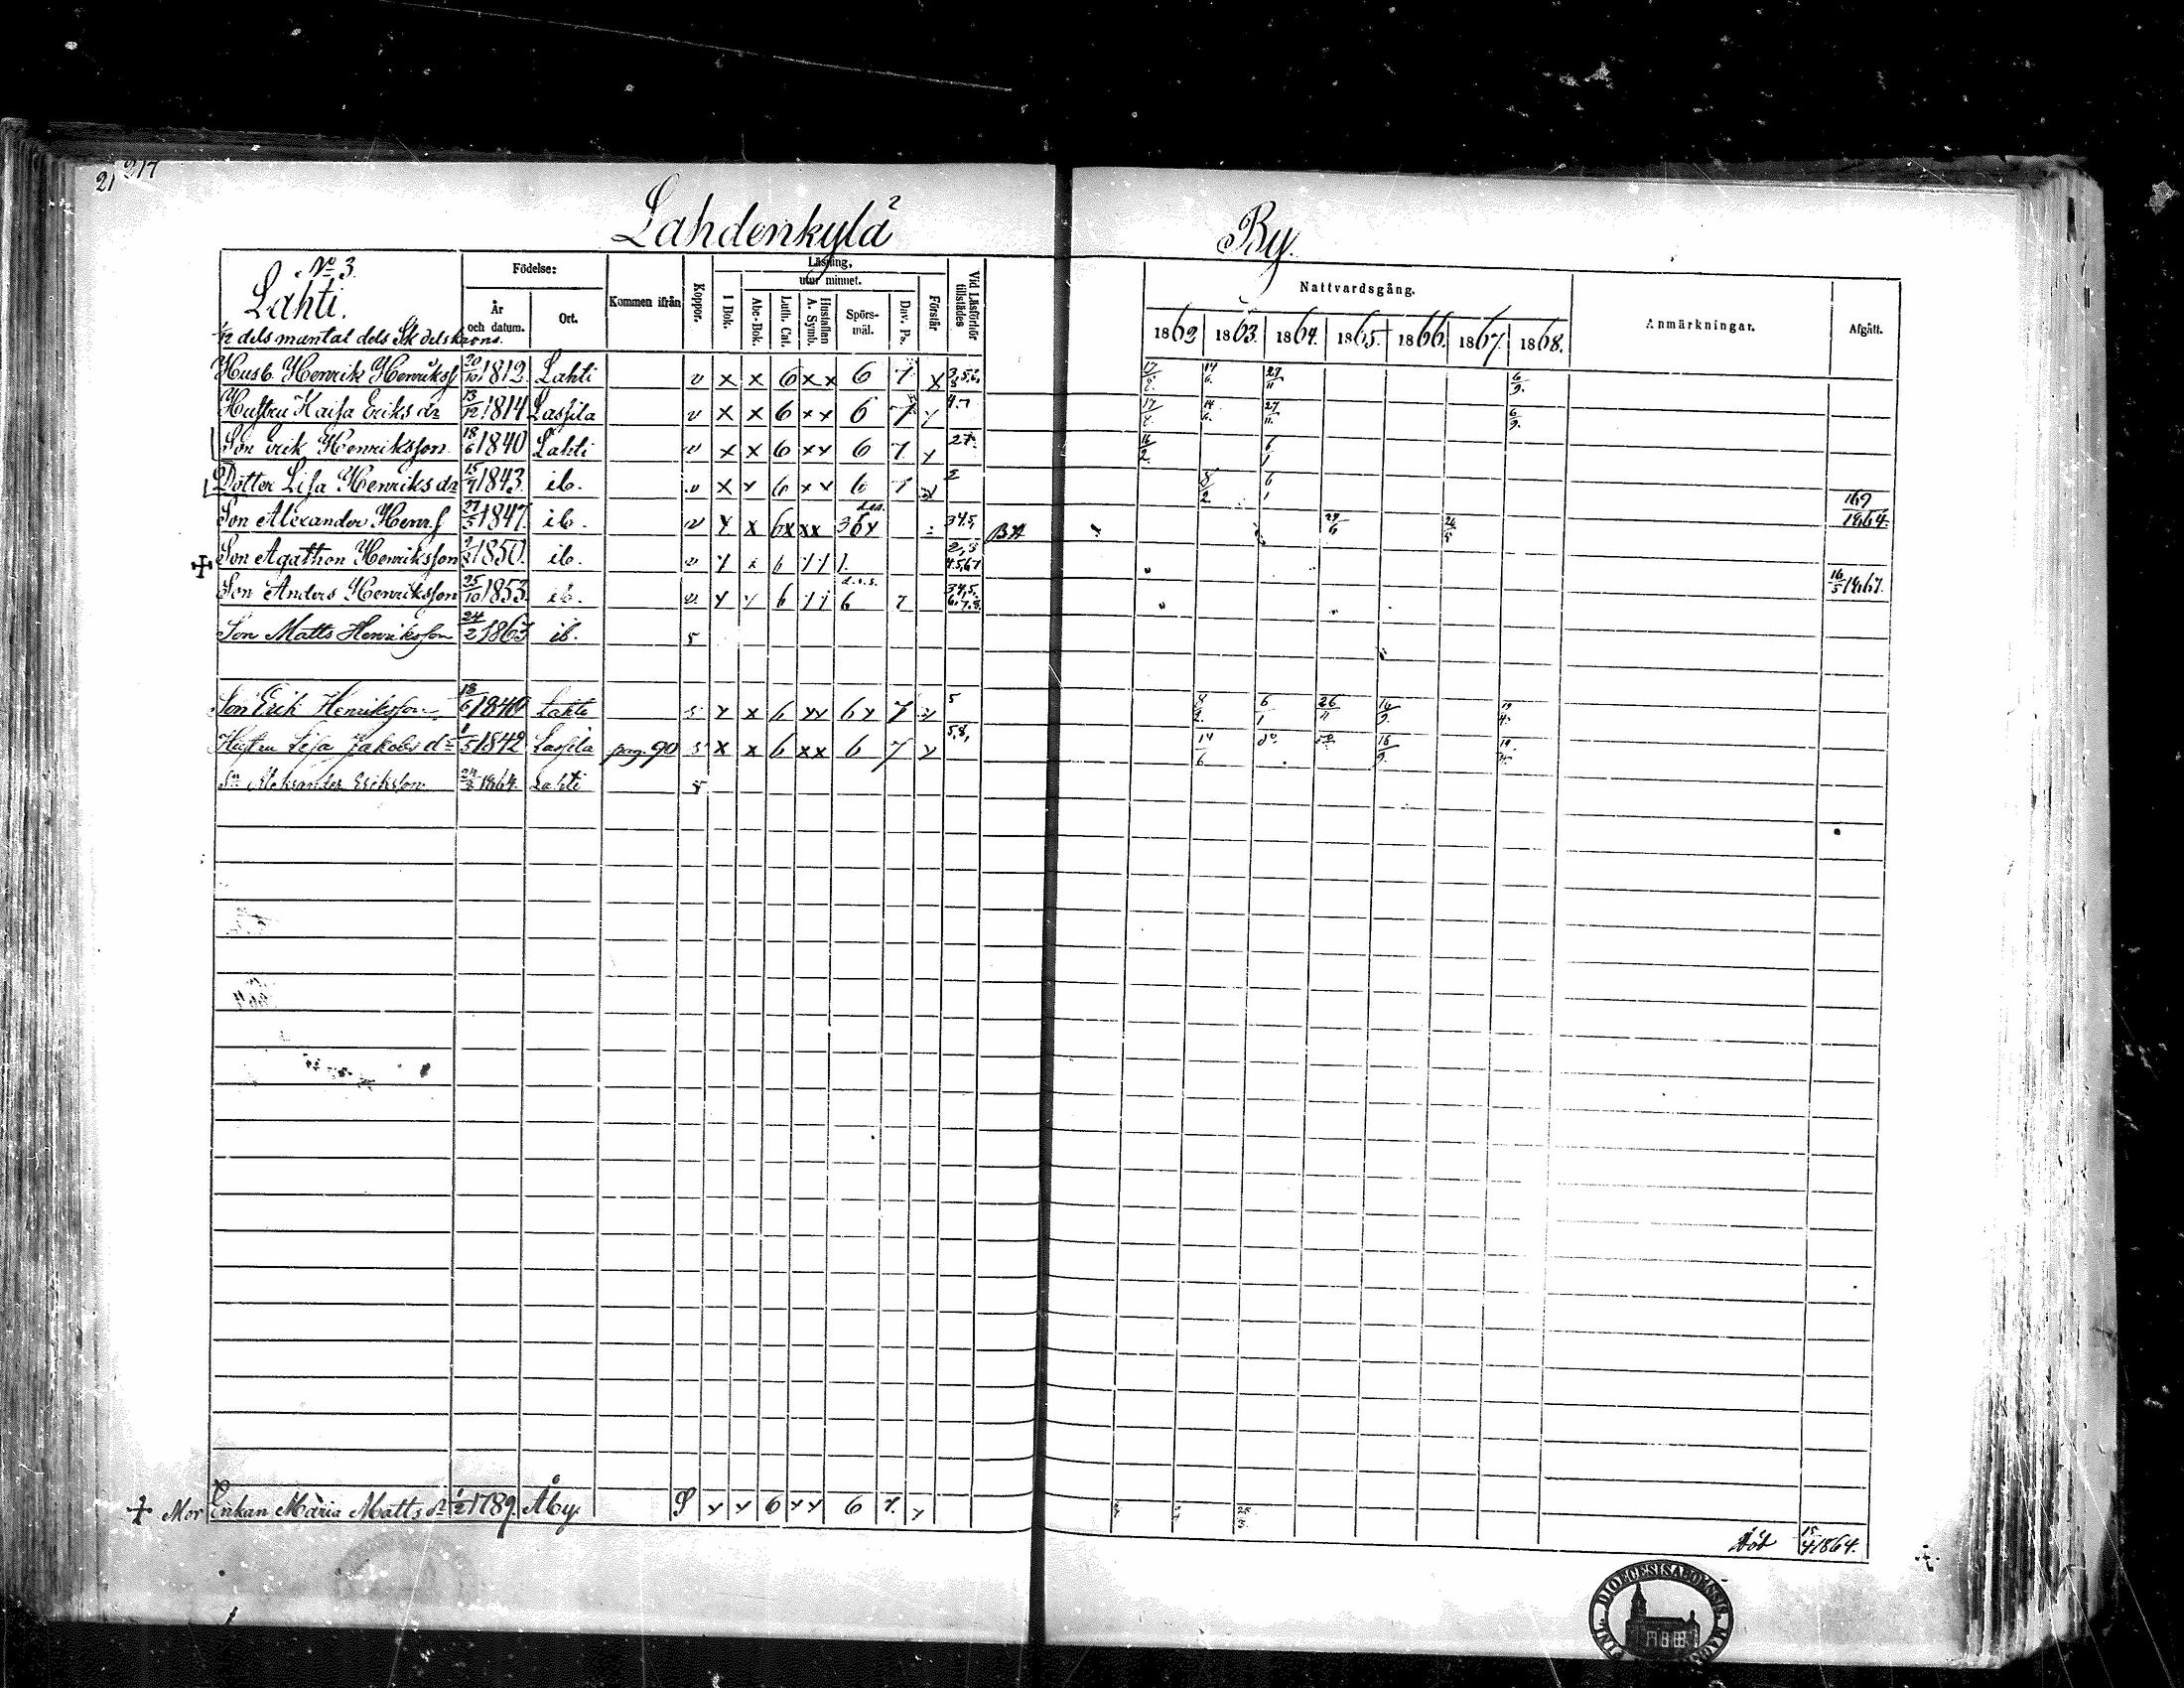 21 217
Lahdenkylä By.
No 3.
Lahti.
1/2 dels mantal dels Sk dels krono.
Födelse:
År och datum.
Ort.
Kommen ifrån
Koppor.
Läsning,
utur minnet.
I Bok.
Abc-Bok.
Luth. Cat.
Hustaflan A. Symb.
Spörs-mål.
Dav. Ps.
Förstår
Vid Läsförhör tillstädes
Nattvardsgång.
1862 1863. 1864. 1865. 1866. 1867. 1868.
Anmärkningar.
Afgått.
Husb. Henrik Henriksf 20/10 1812 Lahti v x x 6 x x 6 7 x 17/8 14/6 27/11 6/9
Hustru Kaisa Eriks dr 13/12 1814 Lassila v x x 6 x x 6 7 x 4.7 17/8 14/6 27/11 6/9
Son Erik Henriksson 18/6 1840 Lahti v x x 6 x x 6 7 x 16/2 6/1
Dotter Lisa Henriks dr 15/7 1843. ib. v x x 6 x x 6 7 x 2 8/2 6/1 169/1864.
Son Alexander Henr.f 27/5 1847. ib. v x x 6x xx 36x 345, BA 29/6
Son Agathon Henriksson 1850. ib. v 6 2,3 4567 16/5 1867.
Son Anders Henriksson 25/10 1853 ib. v 6 6 7 345. 6.7.8.
Son Matts Henriksson 24/2 1863 ib. s
Son Erik Henriksson 18/6 1840 Lahti s x x 6 xx 6x 7 x 5 8/2 6/1 26/11 16/9 19/4
Hustru Lisa Jakobs dr 1/5 1842 Lassila pag. 90 s x x 6 xx 6 7 x 5,8, 14/6 do do 16/9 19/4
Sn Aleksander Eriksson 1864. Lahti s
Mor Enkan Maria Matts dr 1/2 1789. Åby. S x x 6 x x 6 7. x död 15/4 1864.
DIOECESIS ABOENSIS